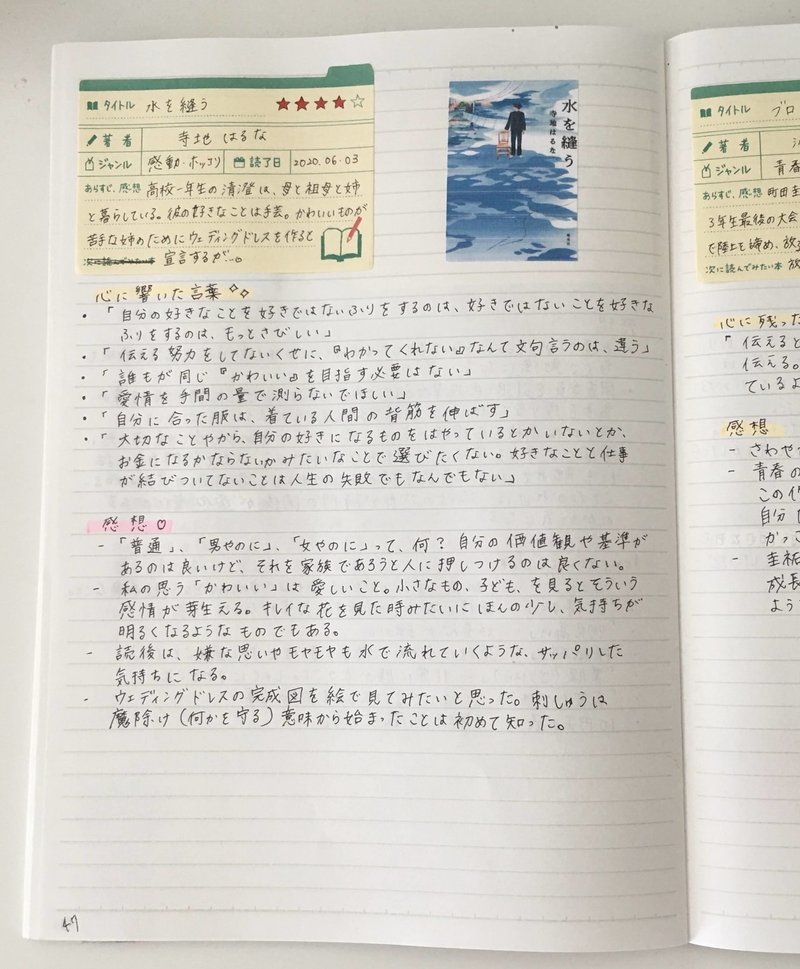 タイトル 水を縫う ★★★★☆
著者 寺地 はるな
ジャンル 感動・ホッコリ 読了日 2020.06.03
あらすじ、感想 高校一年生の清澄は、母と祖母と姉
と暮らしている。彼の好きなことは手芸。かわいいものが
苦手な姉のためにウェディングドレスを作ると
次に読んでみたい本 宣言するが…。
水を縫う
寺地はるな
心に響いた言葉
・「自分の好きなことを好きではないふりをするのは、好きではないことを好きな
ふりをするのは、もっとさびしい」
・「伝える努力をしてないくせに、『わかってくれない』なんて文句言うのは、違う」
・「誰もが同じ『かわいい』を目指す必要はない」
・「愛情を手間の量で測らないでほしい」
・「自分に合った服は、着ている人間の背筋を伸ばす」
・「大切なことやから、自分の好きになるものをはやっているとかいないとか、
お金になるかならないかみたいなことで選びたくない。好きなことと仕事
が結びついてないことは人生の失敗でもなんでもない」
感想♡
- 「普通」、「男やのに」、「女やのに」って、何？自分の価値観や基準が
あるのは良いけど、それを家族であろうと人に押しつけるのは良くない。
- 私の思う「かわいい」は愛しいこと。小さなもの、子ども、を見るとそういう
感情が芽生える。キレイな花を見た時みたいにほんの少し、気持ちが
明るくなるようなものでもある。
- 読後は、嫌な思いやモヤモヤも水で流れていくような、サッパリした
気持ちになる。
- ウェディングドレスの完成図を絵で見てみたいと思った。刺しゅうは
魔除け(何かを守る)意味から始まったことは初めて知った。
47
タイトル ブロ
著者
ジャンル 青春
あらすじ、感想 町田圭
3年生最後の大会
で陸上を諦め、放
次に読んでみたい本 放
心に残った
「伝えると
伝える。
ているよ
感想
- さわや
- 青春の
この作
自分
かっこ
- 圭祐
成長
よう